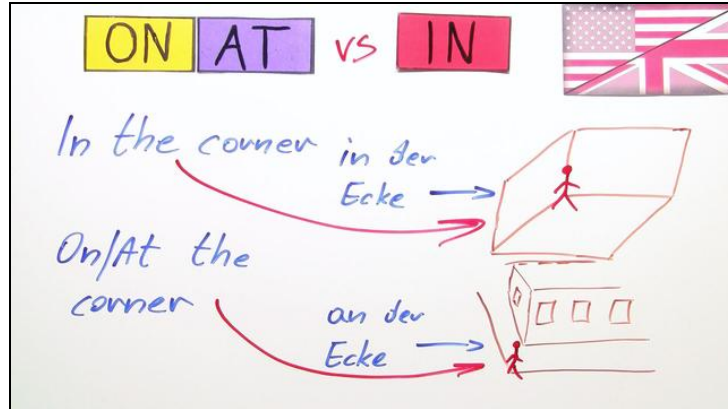 ON AT vs IN
In the corner
in der
Ecke
On/At the
corner
an der
Ecke